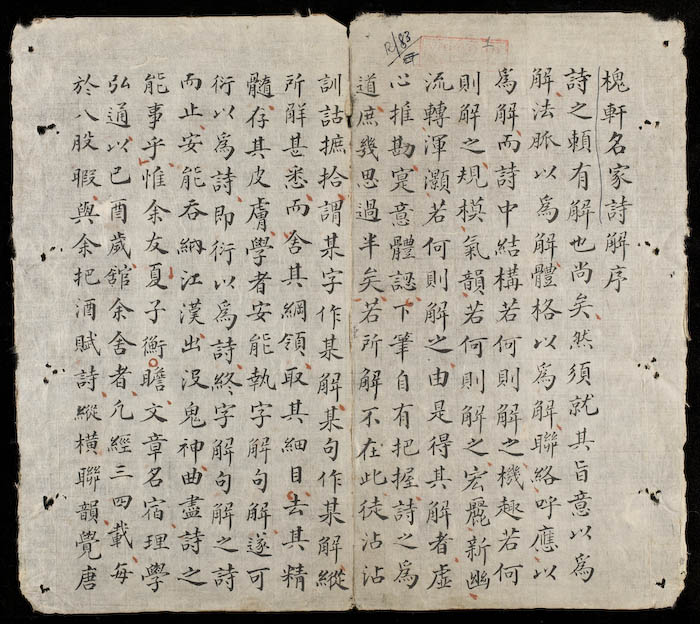 槐軒名家詩解序
詩之賴有解也尚矣然須就其旨意以為
解法脈以為解體格以為解聯絡呼應以
為解而詩中結構若何則解之機趣若何
則解之規模氣韻若何則解之宏麗新幽
流轉渾灝若何則解之由是得其解者虛
心推勘寔意體認下筆自有把握詩之為
道庶幾思過半矣若所解不在此徒沾沾
訓詁摭拾謂某字作某解某句作某解縱
所解甚悉而舍其綱領取其細目去其精
髓存其皮膚學者安能執字解句解遂可
衍以為詩即衍以為詩終字解句解之詩
而止安能吞納江漢出沒鬼神曲盡詩之
能事乎惟余友夏子衡瞻文章名宿理學
弘通以己酉歲舘余舍者凢經三四載每
於八股暇與余把酒賦詩縱橫聯韻覺唐